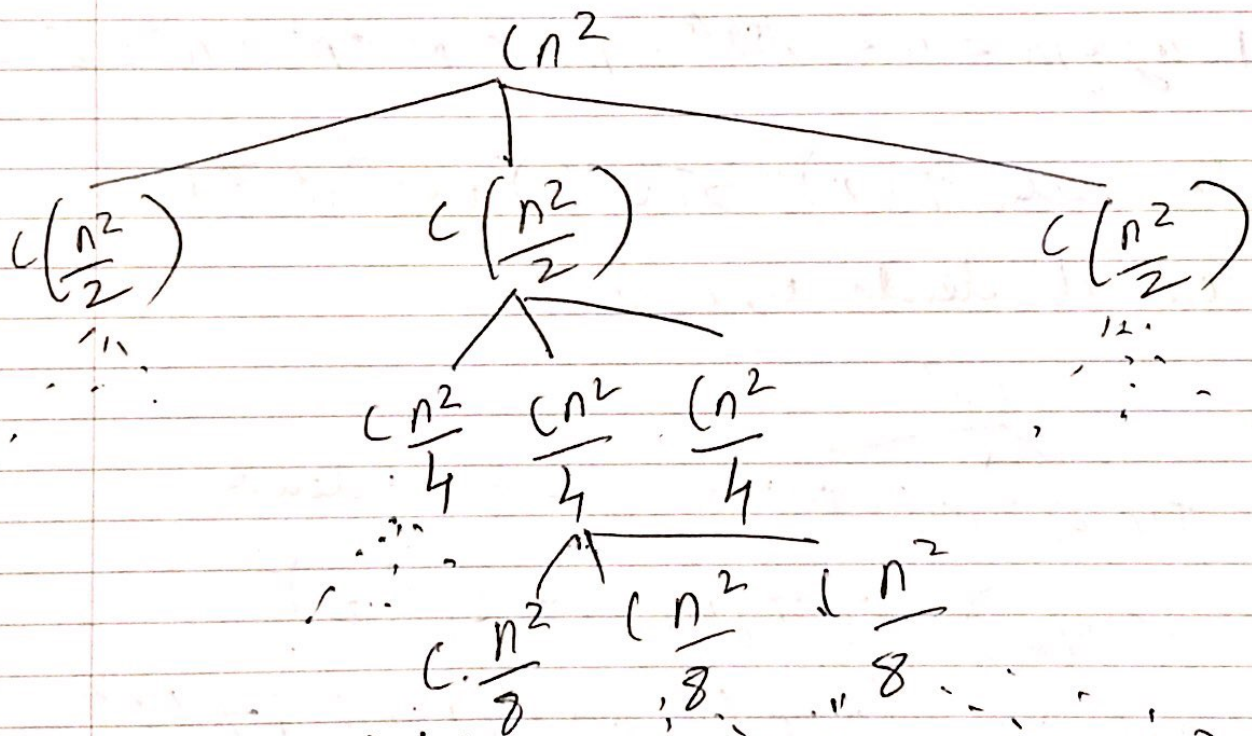 Cn²
C(n²/2) C(n²/2) C(n²/2)
C n²/4 Cn²/4 Cn²/4
C. n²/8 C n²/8 C n²/8